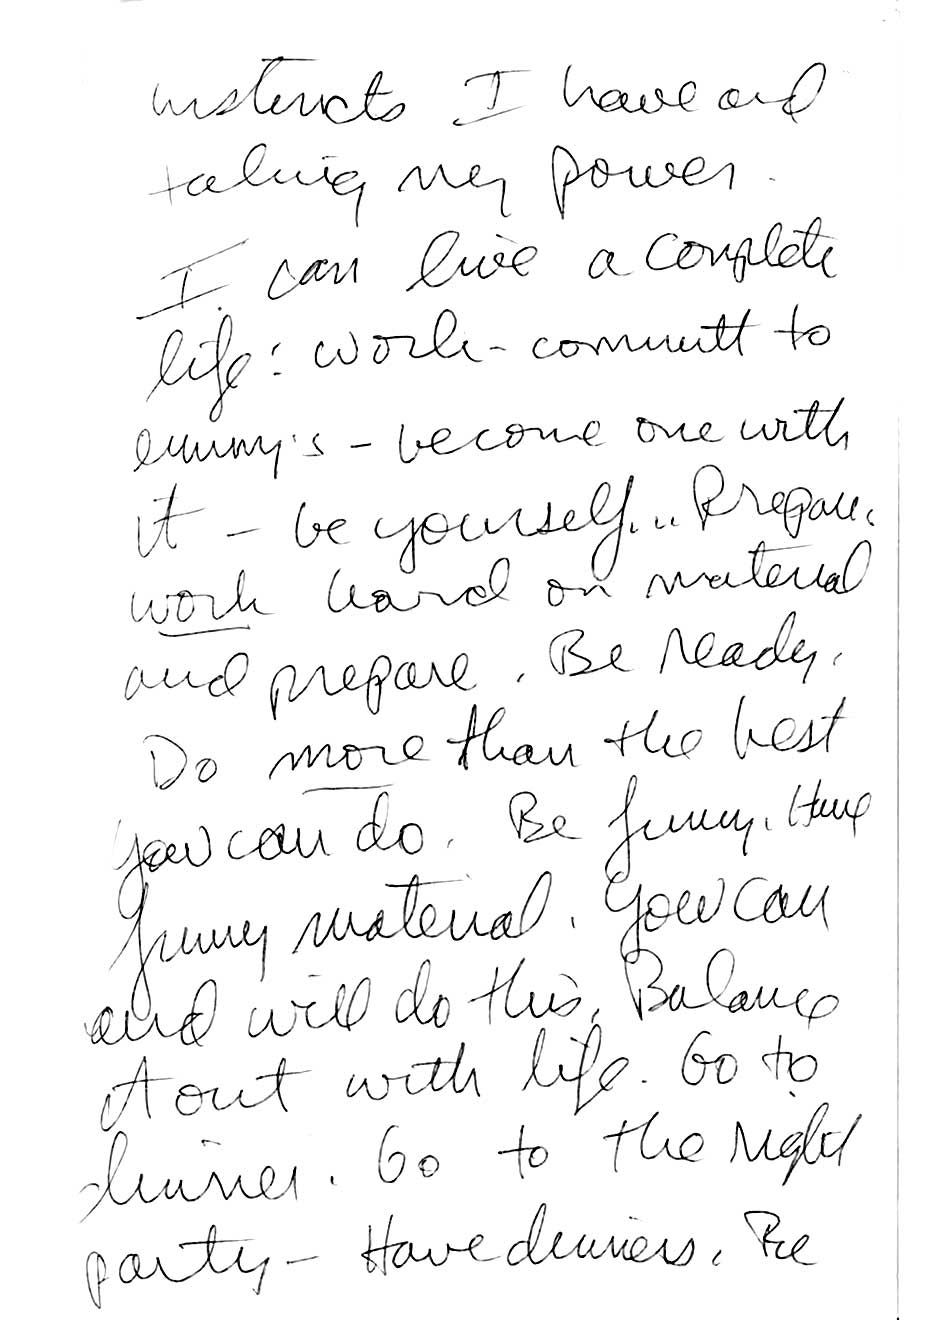 instincts I have and
taking my power.
I can live a complete
life: work - committ to
emmy's - become one with
it - be yourself... Prepare.
work hard on material
and prepare. Be ready.
Do more than the best
you can do. Be funny. Have
funny material. You can
and will do this. Balance
it out with life. Go to
dinner. Go to the right
party - Have dinners. Be